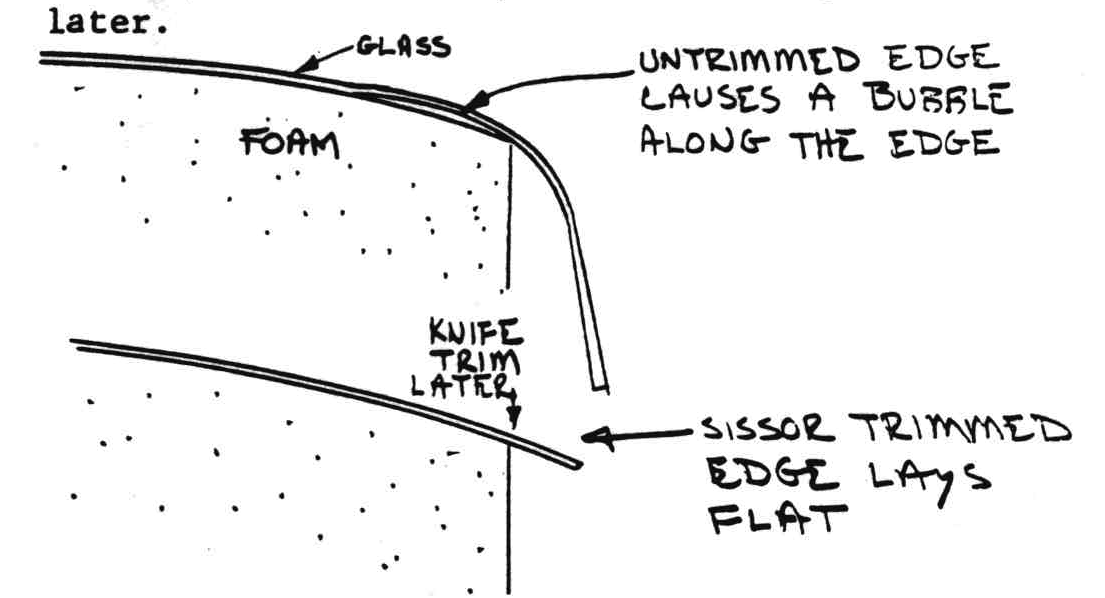 later.
GLASS
UNTRIMMED EDGE
CAUSES A BUBBLE
ALONG THE EDGE
FOAM
KNIFE
TRIM
LATER
SISSOR TRIMMED
EDGE LAYS
FLAT